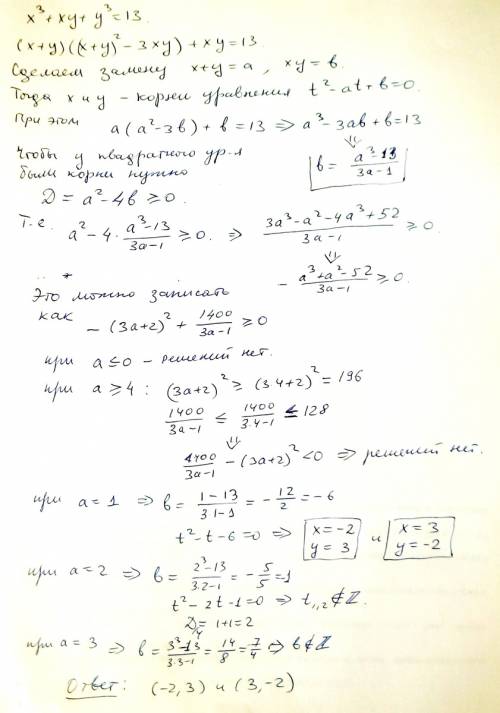 x³+xy+y³=13.
(x+y)((x+y)²-3xy)+xy=13.
Сделаем замену x+y=a, xy=b.
Тогда x и y – корни уравнения t²-at+b=0.
При этом a(a²-3b)+b=13 ⇒ a³-3ab+b=13
⇓
Чтобы у квадратного ур-я
были корни нужно
b = (a³-13)/(3a-1)
D = a²-4b ≥ 0.
Т.е. a²-4·(a³-13)/(3a-1) ≥ 0. ⇒ (3a³-a²-4a³+52)/(3a-1) ≥ 0.
⇓
- (a³+a²-52)/(3a-1) ≥ 0.
Это можно записать
как -(3a+2)² + 1400/(3a-1) ≥ 0
при a ≤ 0 – решений нет.
при a ≥ 4: (3a+2)² ≥ (3·4+2)² = 196
1400/(3a-1) ≤ 1400/(3·4-1) ≤ 128
⇓
1400/(3a-1) - (3a+2)² < 0 ⇒ решений нет.
при a=1 ⇒ b = (1-13)/(3·1-1) = -12/2 = -6
t²-t-6=0 ⇒ x=-2 y=3 и x=3 y=-2
при a=2 ⇒ b = (2³-13)/(3·2-1) = -5/5 = -1
t²-2t-1=0 ⇒ t₁,₂ ∉ Z.
D/4 = 1+1=2
при a=3 ⇒ b = (3³-13)/(3·3-1) = 14/8 = 7/4 ⇒ b ∉ Z
Ответ: (-2,3) и (3,-2)